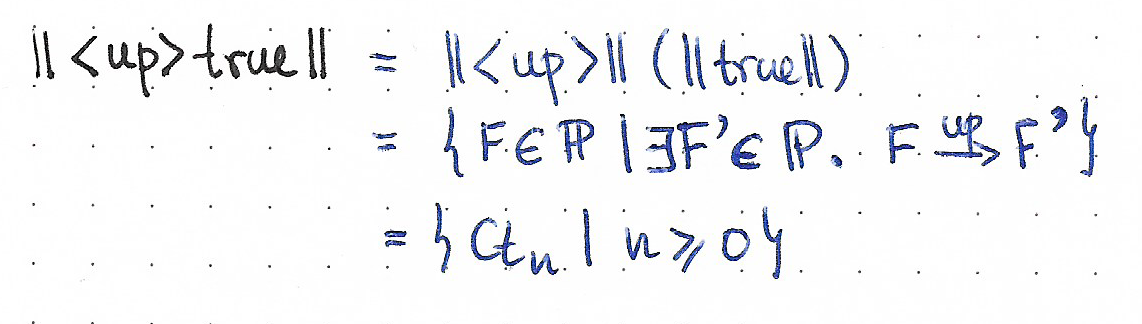 ‖<up>true‖ = ‖<up>‖(‖true‖)
= {F∈ℙ | ∃F'∈ℙ. F –up→ F'}
= {Ctₙ | n ⩾ 0}